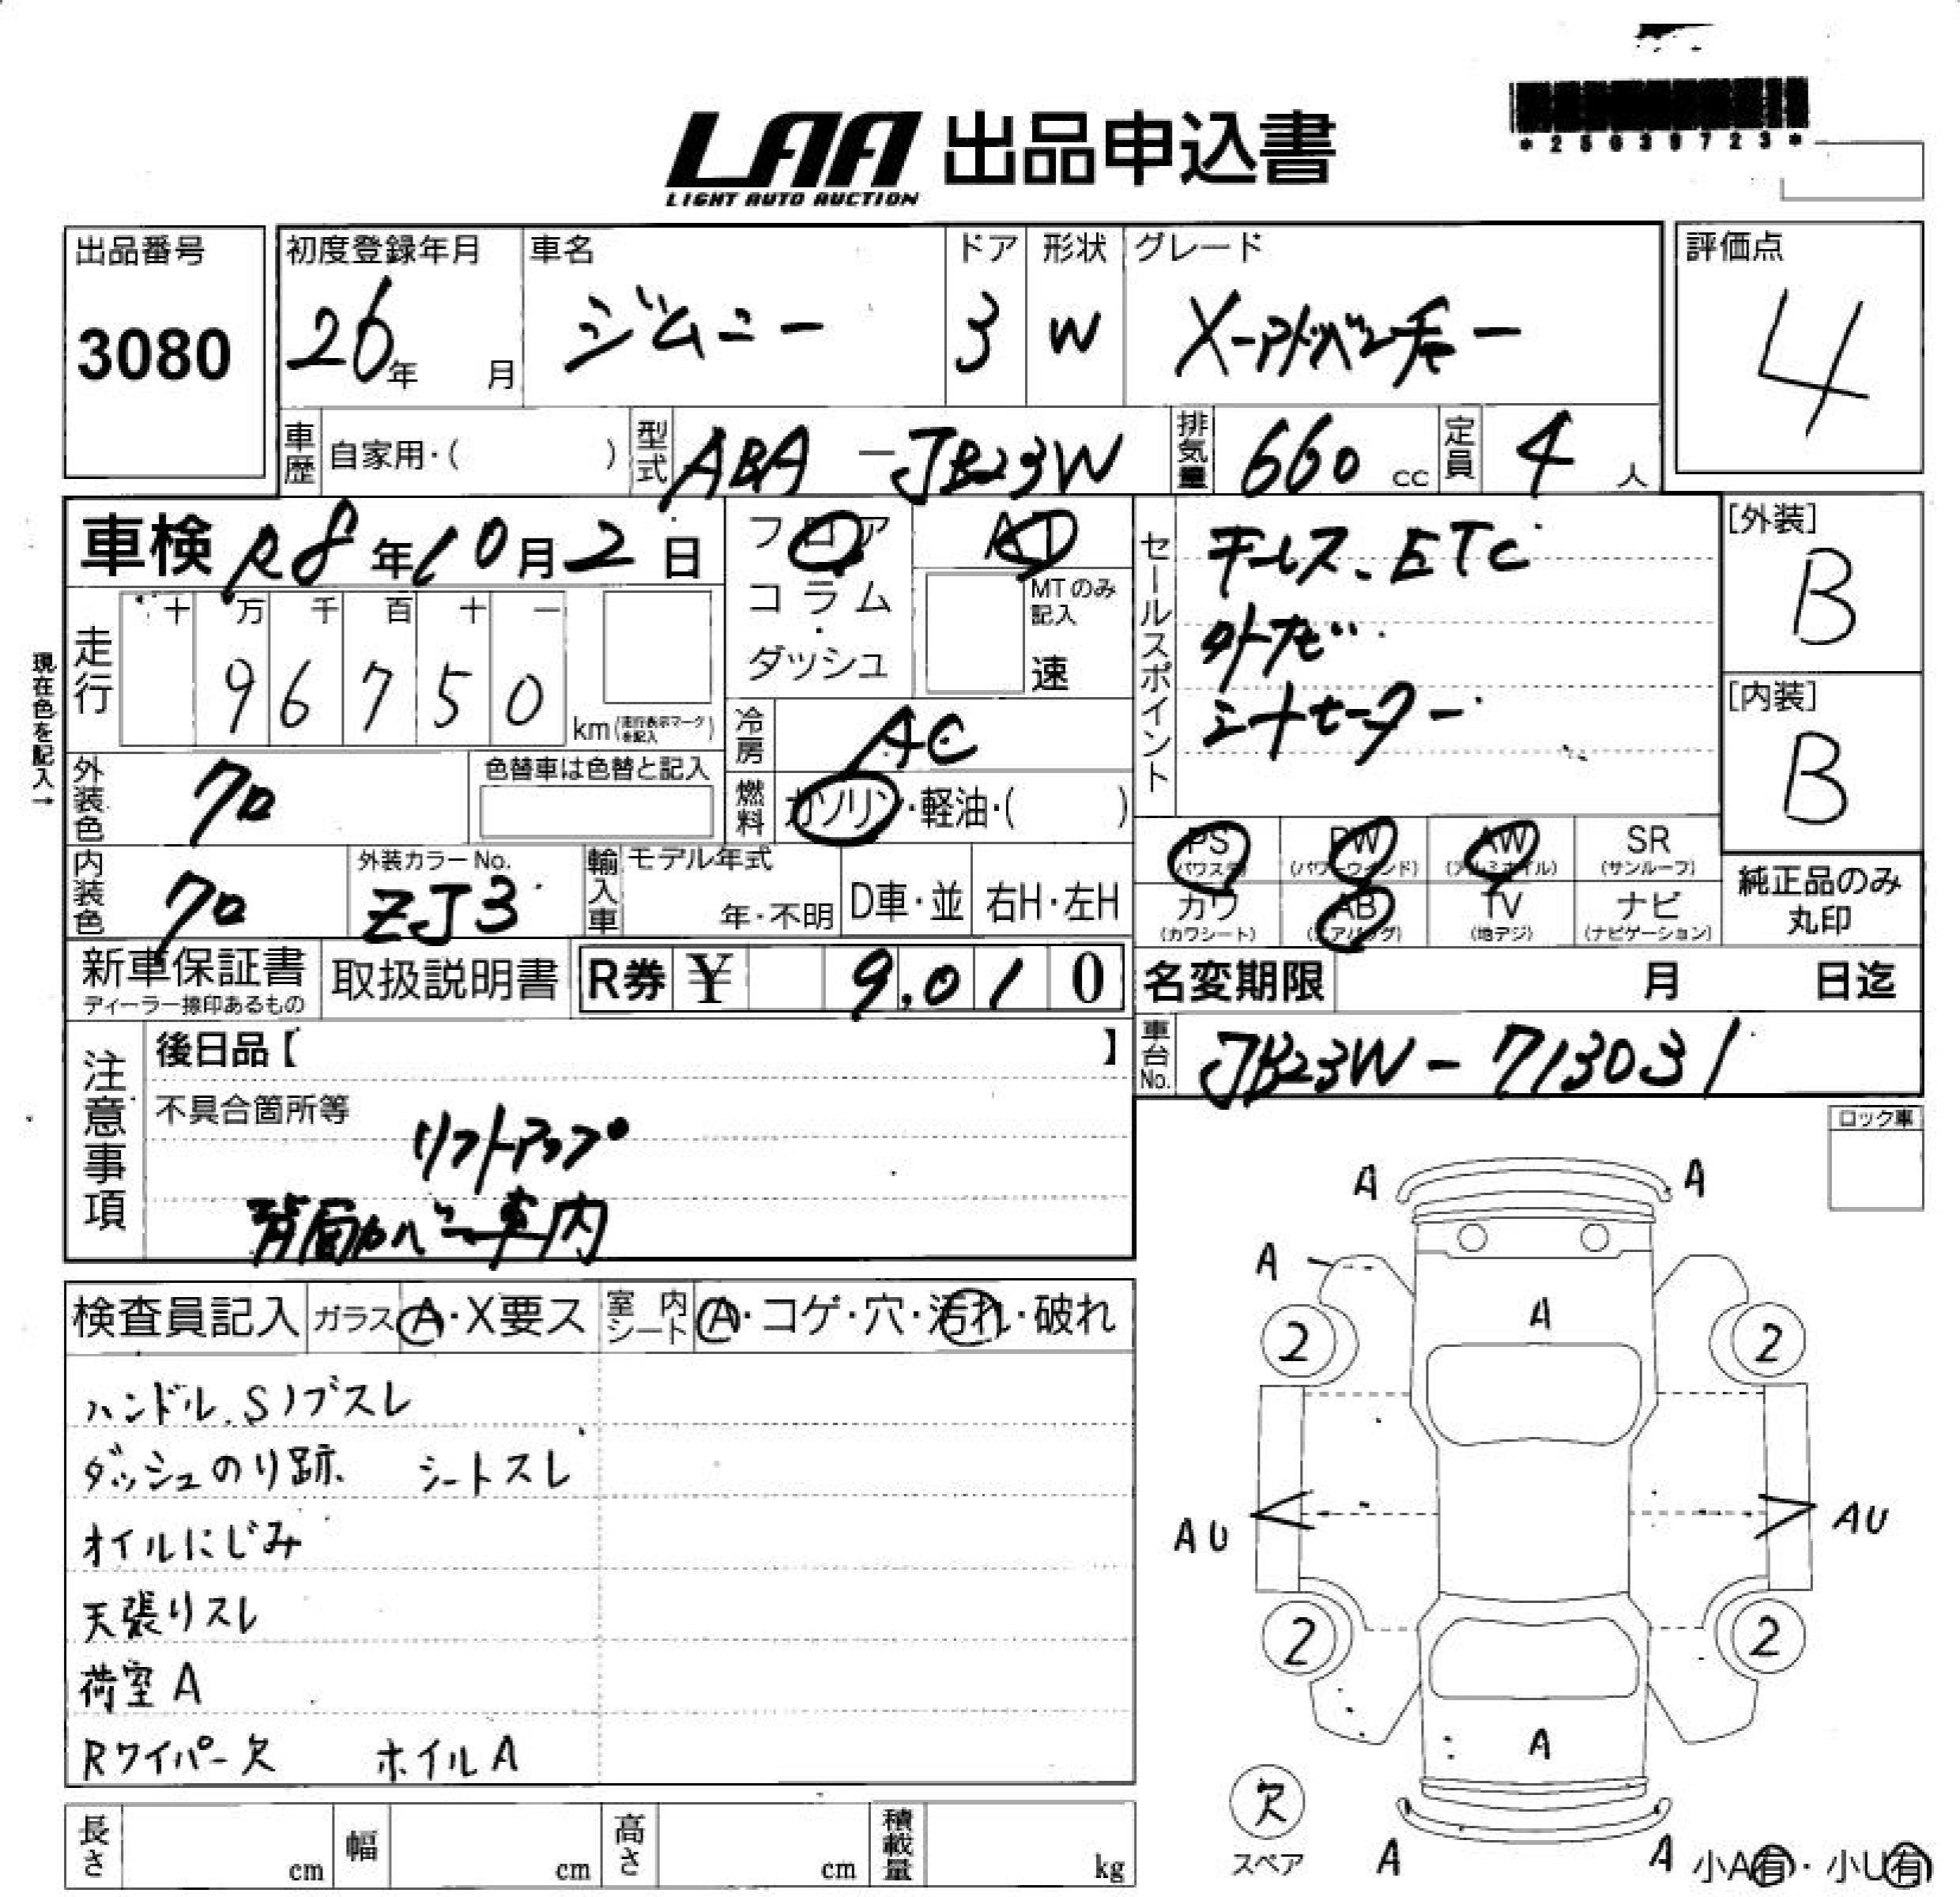 LAA 出品申込書
LIGHT AUTO AUCTION
出品番号
3080
初度登録年月
26年 月
車名
ジムニー
ドア
3
形状
W
グレード
X-アドベンチャー
評価点
4
車歴 自家用・( )
型式 ABA-JB23W
排気量 660 cc
定員 4 人
車検 R8年10月2日
フロア
コラム
・
ダッシュ
AT
MTのみ記入
速
セールスポイント
キーレス、ETC
外ナビ
シートヒーター
[外装]
B
[内装]
B
現在色を記入→
走行
十 万 千 百 十 一
9 6 7 5 0 km (走行表示マークを記入)
冷房 AC
燃料 ガソリン・軽油・( )
外装色 クロ
色替車は色替と記入
内装色 クロ
外装カラーNo.
ZJ3
輸入車
モデル年式
年・不明
D車・並
右H・左H
PS
(パワステ)
PW
(パワーウインド)
AW
(アルミホイル)
SR
(サンルーフ)
カワ
(カワシート)
AB
(エアバッグ)
TV
(地デジ)
ナビ
(ナビゲーション)
純正品のみ
丸印
新車保証書
ディーラー捺印あるもの
取扱説明書
R券 ¥ 9,010
名変期限 月 日迄
車台No. JB23W-713031
注意事項
後日品【 】
不具合箇所等
リフトアップ
背面カバー車内
ロック車
検査員記入
ガラス A・X要ス
室内シート A・コゲ・穴・汚れ・破れ
ハンドル.Sノブスレ
ダッシュのり跡 シートスレ
オイルにじみ
天張りスレ
荷室A
Rワイパー欠 ホイルA
A A
A
A
2 2
AU AU
2 2
A
欠
スペア
A A
小A有・小U有
長さ cm
幅 cm
高さ cm
積載量 kg